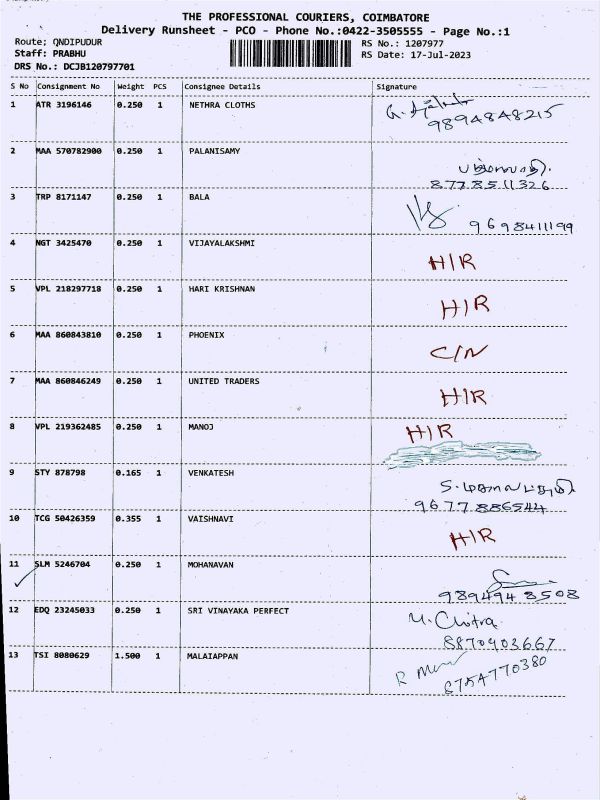 THE PROFESSIONAL COURIERS, COIMBATORE
Delivery Runsheet - PCO - Phone No.:0422-3505555 - Page No.:1
Route: QNDIPUDUR
RS No.: 1207977
Staff: PRABHU
RS Date: 17-Jul-2023
DRS No.: DCJB120797701
S No Consignment No Weight PCS Consignee Details Signature
1 ATR 3196146 0.250 1 NETHRA CLOTHS
9894848215
2 MAA 570782900 0.250 1 PALANISAMY
8778511326
3 TRP 8171147 0.250 1 BALA
9698411199
4 NGT 3425470 0.250 1 VIJAYALAKSHMI
H/R
5 VPL 218297718 0.250 1 HARI KRISHNAN
H/R
6 MAA 860843810 0.250 1 PHOENIX
C/N
7 MAA 860846249 0.250 1 UNITED TRADERS
H/R
8 VPL 219362485 0.250 1 MANOJ H/R
9 STY 878798 0.165 1 VENKATESH
9677886544
10 TCG 50426359 0.355 1 VAISHNAVI
H/R
11 SLM 5246704 0.250 1 MOHANAVAN
9894948508
12 EDQ 23245033 0.250 1 SRI VINAYAKA PERFECT M. Chitra
8870903667
13 TSI 8080629 1.500 1 MALAIAPPAN
8754770380